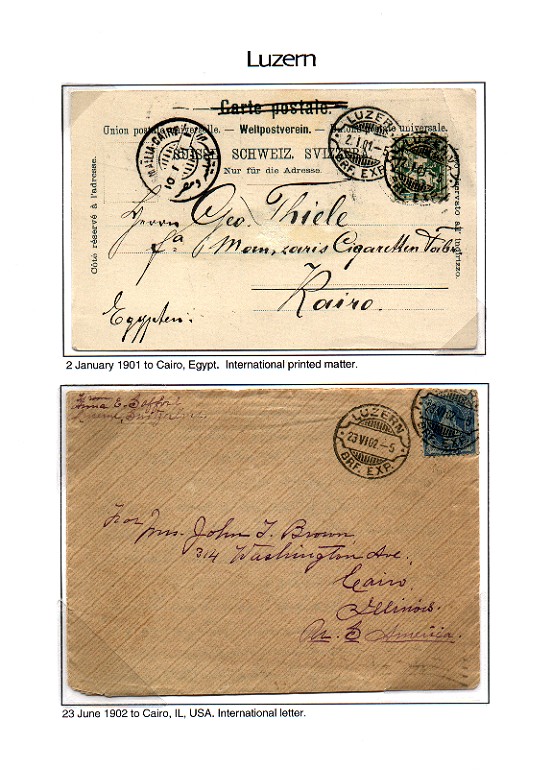 Luzern
Carte postale.
Union postale universelle. — Weltpostverein. — Unione postale universale.
SUISSE. SCHWEIZ. SVIZZERA.
Nur für die Adresse.
Côté réservé à l'adresse.
LUZERN
2.I.01.-5
BRF. EXP.
LUZERN
BRF. EXP.
Herrn Geo. Thiele
fa
Cigaretten Fabr.
Kairo.
Egypten.
2 January 1901 to Cairo, Egypt.  International printed matter.
From
Anna E.
LUZERN
23.VI.02.-5
BRF. EXP.
BRF. EXP.
For Mrs. John T. Brown,
314 Washington Ave.
Cairo,
Illinois.
U. S. America.
23 June 1902 to Cairo, IL, USA. International letter.